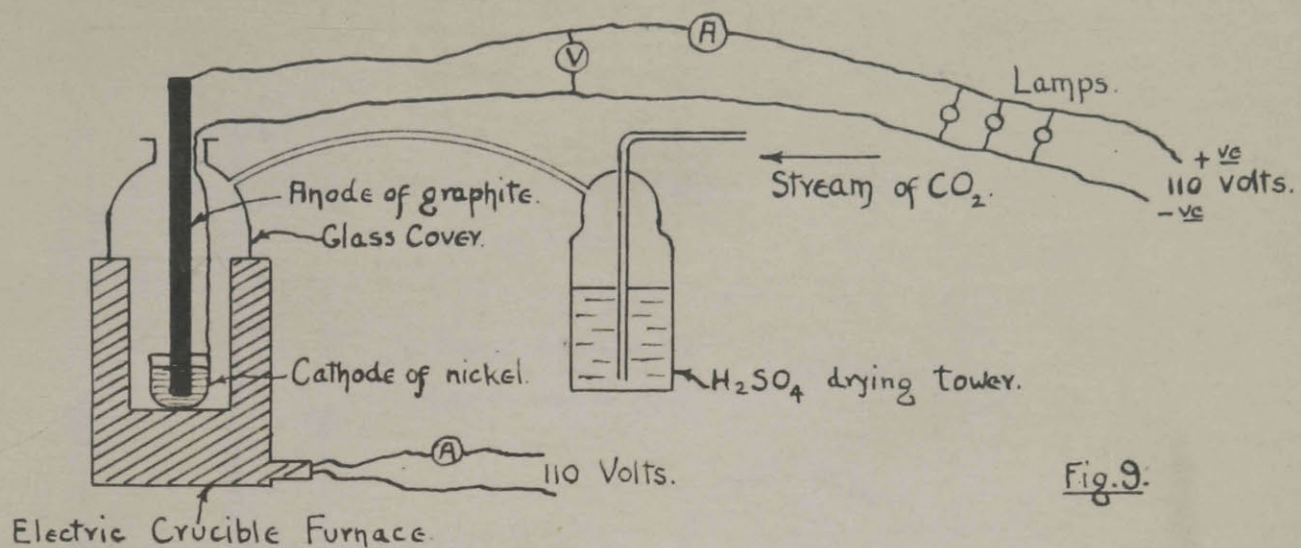 A
V
Lamps.
+ ve
110 volts.
- ve
Stream of CO₂.
Anode of graphite.
Glass Cover.
Cathode of nickel.
H₂SO₄ drying tower.
A
110 Volts.
Fig. 9.
Electric Crucible Furnace.